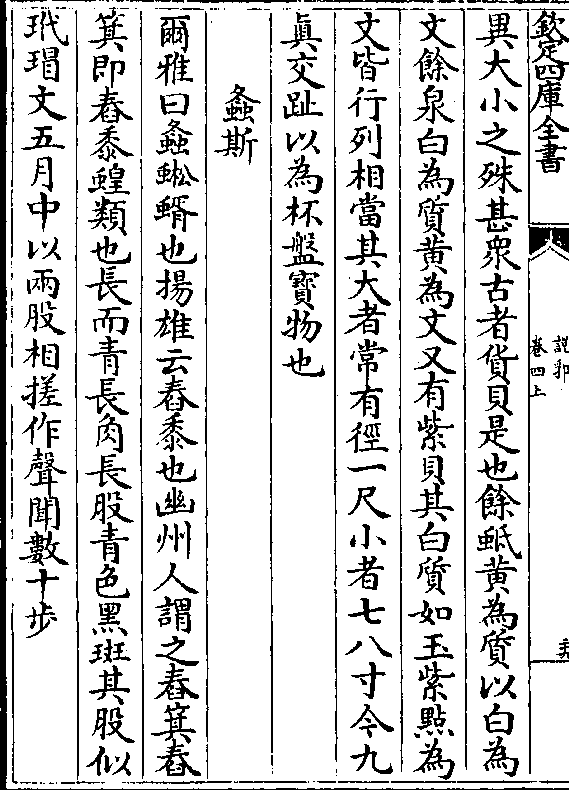 欽定四庫全書
說郛
卷四上
異大小之殊甚衆古者貨貝是也餘蚳黄為質以白為
文餘泉白為質黄為文又有紫貝其白質如玉紫點為
文皆行列相當其大者常有徑一尺小者七八寸今九
真交趾以為杯盤寳物也
螽斯
爾雅曰螽蜙蝑也揚雄云舂黍也幽州人謂之舂箕舂
箕即舂黍蝗類也長而青長角長股青色黑斑其股似
玳瑁文五月中以兩股相搓作聲聞數十步